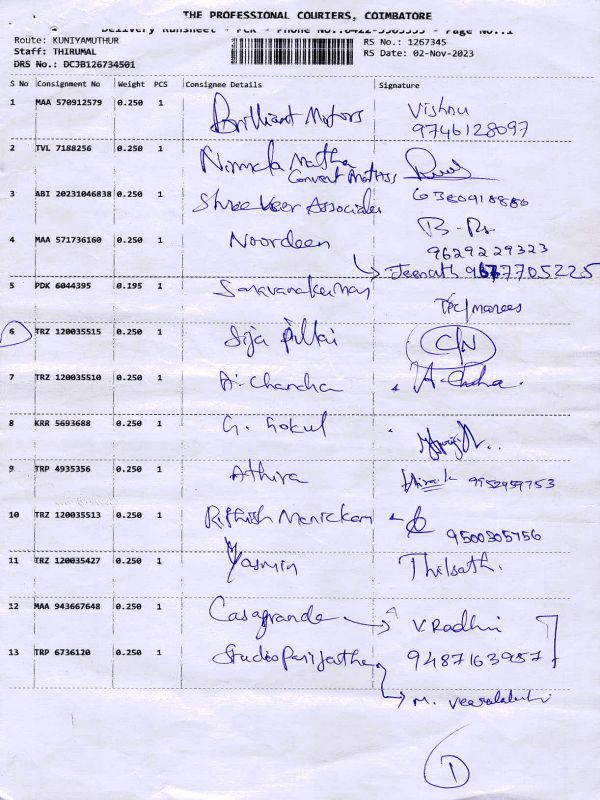 THE PROFESSIONAL COURIERS, COIMBATORE
Delivery Runsheet - PCR - Phone No.:0422-3565555 - Page No.:1
Route: KUNIYAMUTHUR
Staff: THIRUMAL
DRS No.: DCJB126734501
RS No.: 1267345
RS Date: 02-Nov-2023
S No Consignment No Weight PCS Consignee Details Signature
1 MAA 570912579 0.250 1 Brilliant Motors Vishnu
9746128097
2 TVL 7188256 0.250 1 Nirmala Matha
Convent Matriss
3 ABI 20231046838 0.250 1 Shree Veer Associates 6380918880
4 MAA 571736160 0.250 1 Noordeen 9629229323
Jeenath 9677705225
5 PDK 6044395 0.195 1 Saravanakumar
6 TRZ 120035515 0.250 1 Sija Pillai C/N
7 TRZ 120035510 0.250 1 A. Chandra
8 KRR 5693688 0.250 1 G. Gokul
9 TRP 4935356 0.250 1 Athira 9952959753
10 TRZ 120035513 0.250 1 Rithish Manickam 9500305756
11 TRZ 120035427 0.250 1 Yasmin Thilsath.
12 MAA 943667648 0.250 1 Casagrande V. Radhi
13 TRP 6736120 0.250 1 Studio Parijatha 9487163957
M.
1